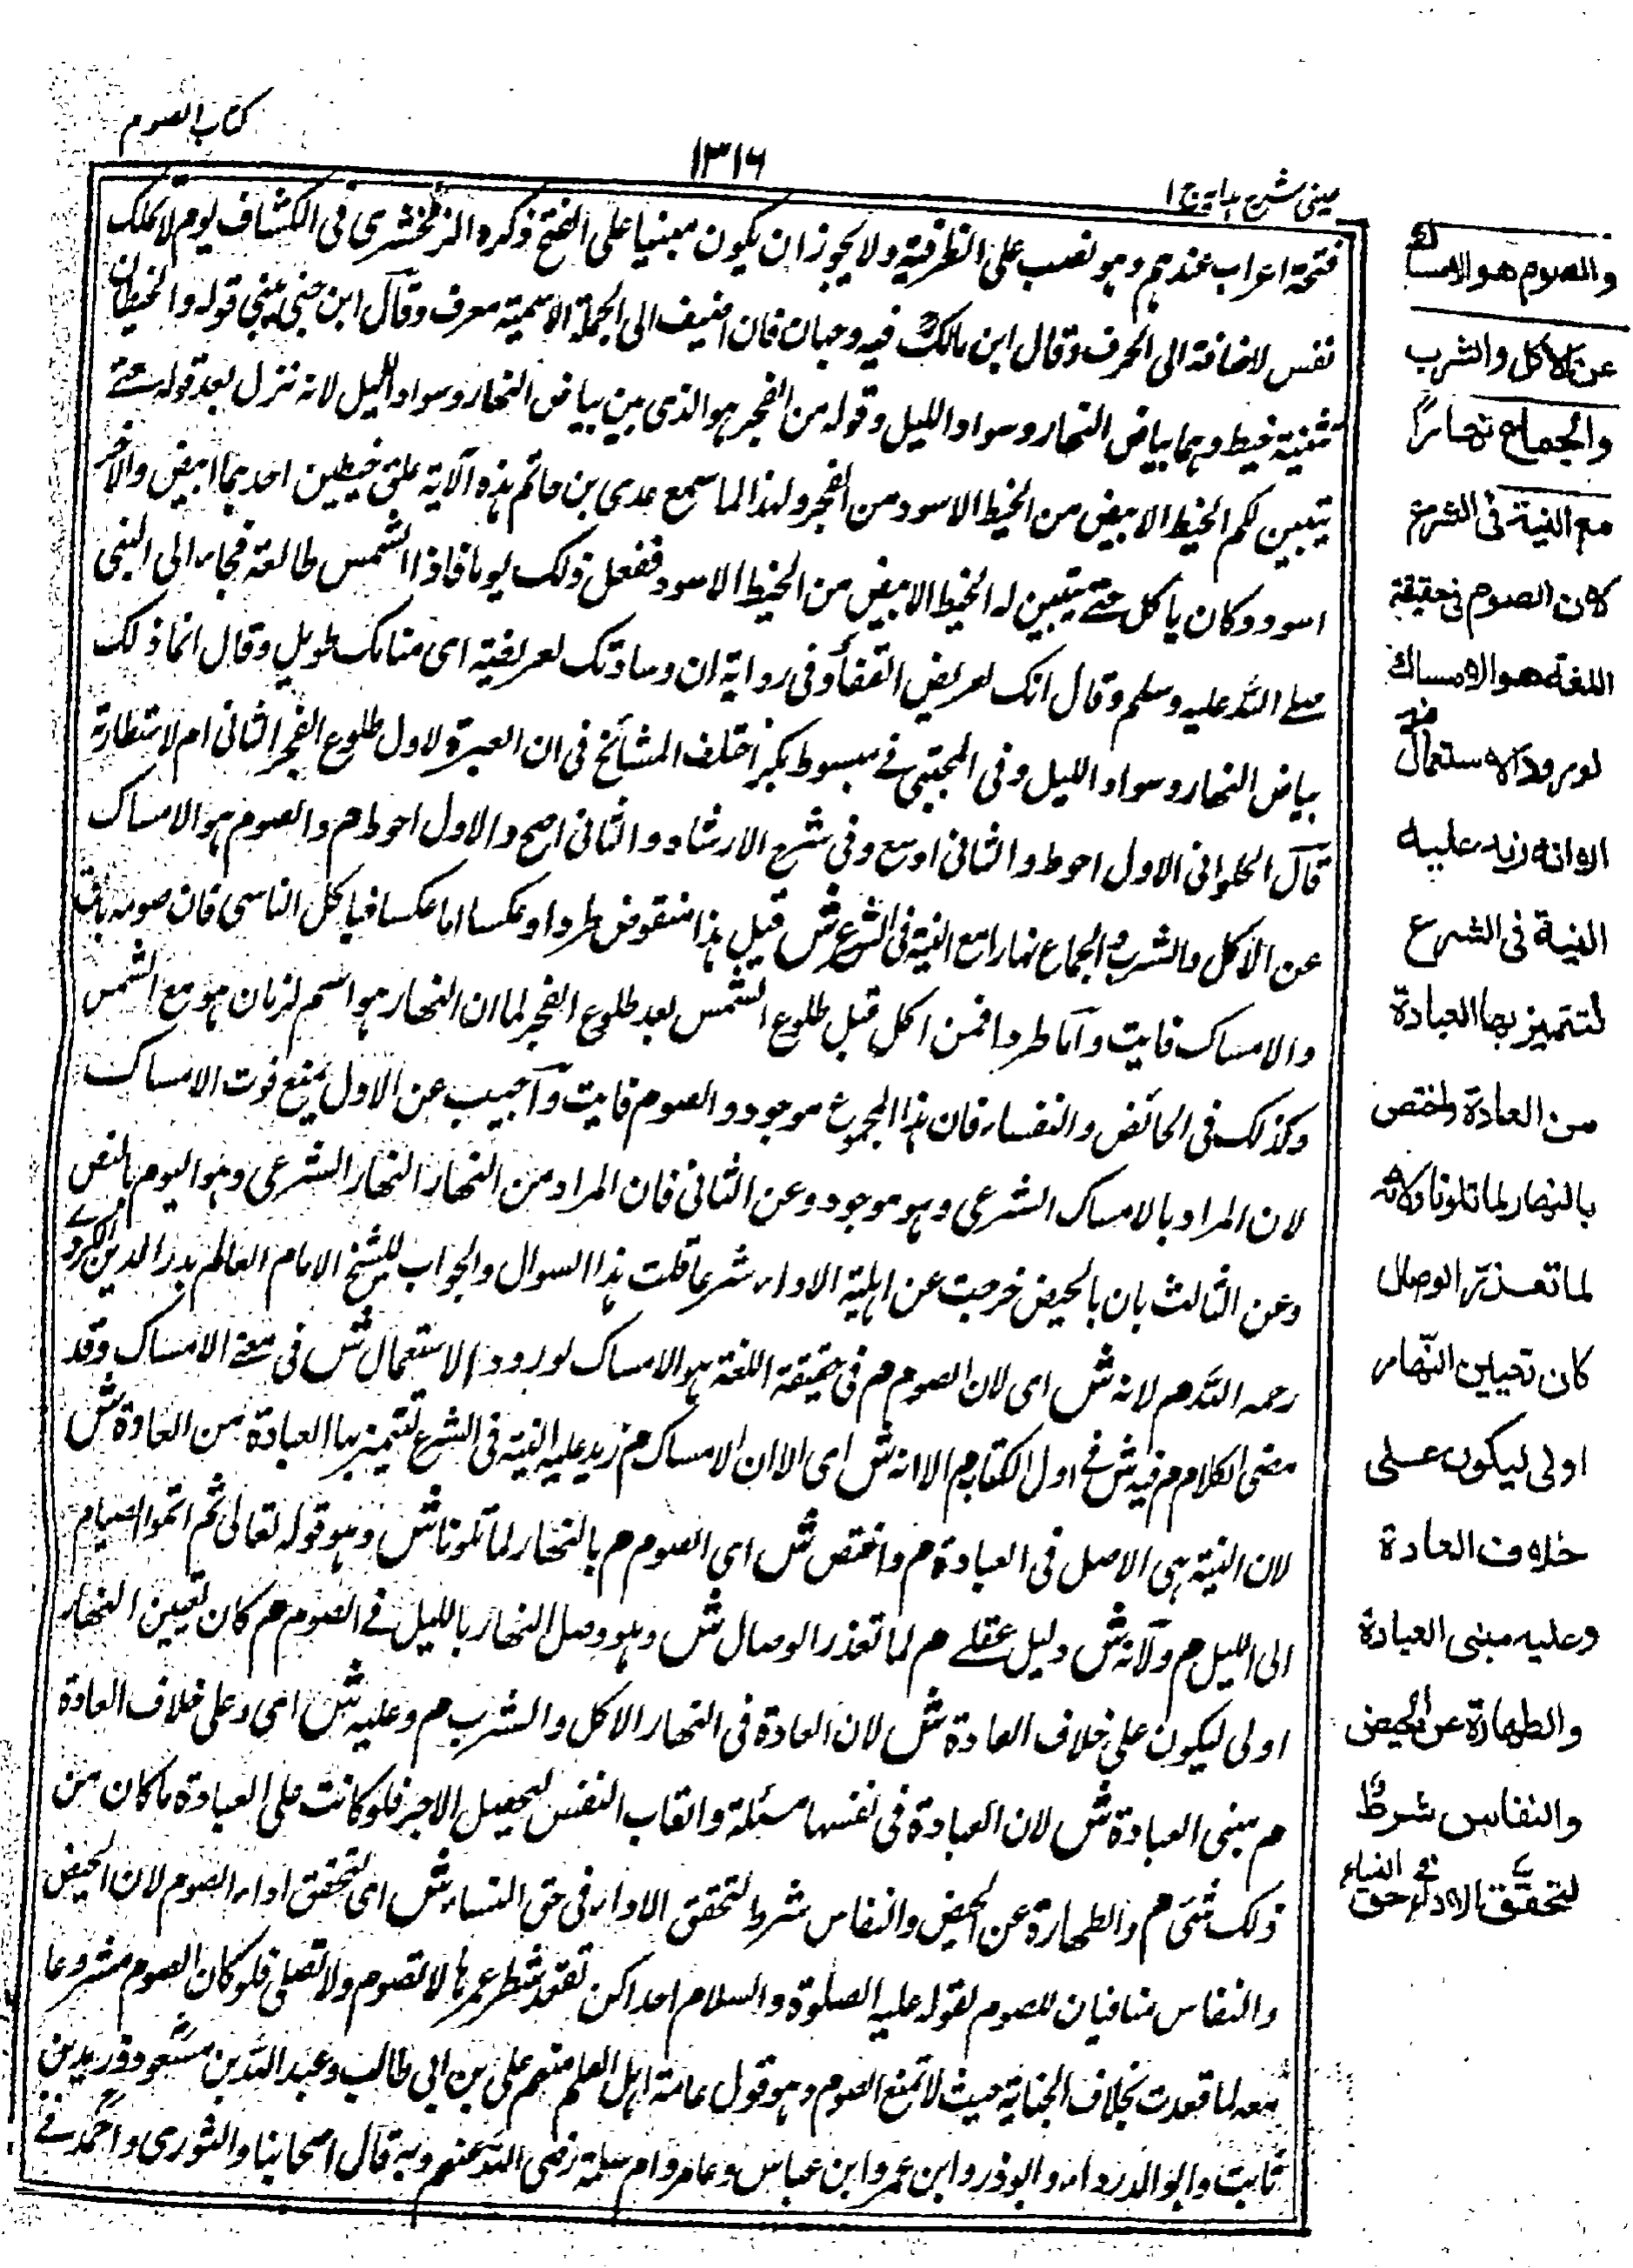 كتاب الصوم
١٣١٦
عینی شرح ہدایہ ج ١
فتحة اعراب عندہم وہو نصب علی الظرفیة ولا یجوز ان یکون مبنیا علی الفتح ذکرہ الزمخشری فی الکشاف یوم لا تملک
نفس لاضافة الی الحرف وقال ابن مالک فیه وجهان فان اضیف الی الجملة الاسمیة معرف وقال ابن جنی مبنی قوله والخیطان
تثنیة خیط وہما بیاض النهار وسواد اللیل وقوله من الفجر ہو الذی بین بیاض النهار وسواد اللیل لانه نزل بعد قوله حتے
یتبین لکم الخیط الابیض من الخیط الاسود من الفجر ولهذا لما سمع عدی بن حاتم ہذہ الآیة علق خیطین احدہما ابیض والآخر
اسود وکان یاکل حتے یتبین له الخیط الابیض من الخیط الاسود ففعل ذلک یوما فاذا الشمس طالعة فجاء الی النبی
صلے اللہ علیه وسلم وقال انک لعریض القفا وفی روایة ان وسادتک لعریضة ای منامک طویل وقال انما ذلک
بیاض النهار وسواد اللیل وفی المجتبی فے مبسوط بکر اختلف المشائخ فی ان العبرة لاول طلوع الفجر الثانی ام لاستطارته
قال الحلوانی الاول احوط والثانی اوسع وفی شرح الارشاد والثانی اصح والاول احوط م والصوم ہو الامساک
عن الاکل والشرب والجماع نهارا مع النیة فی الشرع ش قیل ہذا منقوض طردا وعکسا اما عکسا فباکل الناسی فان صومه باق
والامساک فایت وآما طردا فمن اکل قبل طلوع الشمس بعد طلوع الفجر لما ان النهار ہو اسم لزمان ہو مع الشمس
وکذلک فی الحائض والنفساء فان ہذا المجموع موجود والصوم فایت وآجیب عن الاول بمنع فوت الامساک
لان المراد بالامساک الشرعی وہو موجود وعن الثانی فان المراد من النهار النهار الشرعی وہو الیوم بالنص
وعن الثالث بان بالحیض خرجت عن اہلیة الاداء شرعا قلت ہذا السوال والجواب للشیخ الامام العالم بدر الدین الکردری
رحمه اللہ م لانه ش ای لان الصوم م فی حقیقة اللغة ہو الامساک لورود الاستعمال ش فی معنے الامساک وقد
مضی الکلام م فیه ش فے اول الکتاب م الا انه ش ای الا ان الامساک م زید علیه النیة فی الشرع لتتمیز بها العبادة من العادة ش
لان النیة ہی الاصل فی العبادة م واختص ش ای الصوم م بالنهار لما تلونا ش وہو قوله تعالی ثم اتموا الصیام
الی اللیل م ولآنه ش دلیل عقلے م لما تعذر الوصال ش وہو وصل النهار باللیل فے الصوم م کان تعیین النهار
اولی لیکون علی خلاف العادة ش لان العادة فی النهار الاکل والشرب م وعلیه ش ای وعلی خلاف العادة
م مبنی العبادة ش لان العبادة فی نفسها مسئلة واتعاب النفس لتحصیل الاجر فلو کانت علی العبادة ما کان من
ذلک شئ م والطهارة عن الحیض والنفاس شرط لتحقق الاداء فی حق النساء ش ای لتحقق اداء الصوم لان الحیض
والنفاس منافیان للصوم لقوله علیه الصلوة والسلام احداکن تقعد شطر عمرہا لا تصوم ولا تصلی فلو کان الصوم مشروعا
معه لما قعدت بخلاف الجنابة حیث لا تمنع الصوم وہو قول عامة اہل العلم منهم علی بن ابی طالب وعبد اللہ بن مسعود وزید بن
ثابت وابو الدرداء وابوذر وابن عمر وابن عباس وعامر وام سلمة رضی اللہ عنهم وبه قال اصحابنا والثوری واحمد فے
والصوم هو الامساك
عن الاكل والشرب
والجماع نهارًا
مع النية فى الشرع
لان الصوم فى حقيقة
اللغة هو الامساك
لورود الاستعمال فيه
الا انه زيد عليه
النية فى الشرع
لتتميز بها العبادة
من العادة واختص
بالنهار لما تلونا ولانه
لما تعذر الوصال
كان تعيين النهار
اولى ليكون على
خلاف العادة
وعليه مبنى العبادة
والطهارة عن الحيض
والنفاس شرطٌ
لتحقق الاداء فى حق النساء